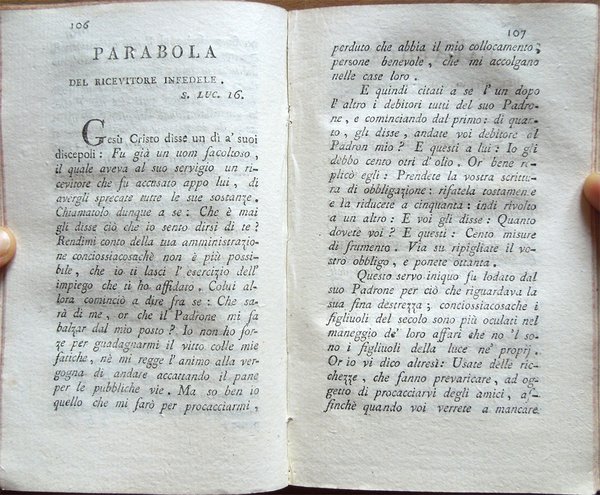 106
PARABOLA
DEL RICEVITORE INFEDELE.
S. LUC. 16.
Gesù Cristo disse un dì a' suoi
discepoli: Fu già un uom facoltoso,
il quale aveva al suo servigio un ri-
cevitore che fu accusato appo lui, di
avergli sprecate tutte le sue sostanze.
Chiamatolo dunque a se: Che è mai
gli disse ciò che io sento dirsi di te?
Rendimi conto della tua amministrazio-
ne conciossiacosachè non è più possi-
bile, che io ti lasci l'esercizio dell'
impiego che ti ho affidato. Colui al-
lora cominciò a dire fra se: Che sa-
rà di me, or che il Padrone mi fa
balzar dal mio posto? Io non ho for-
ze per guadagnarmi il vitto colle mie
fatiche, nè mi regge l'animo alla ver-
gogna di andare accattando il pane
per le pubbliche vie. Ma so ben io
quello che mi farò per procacciarmi,
107
perduto che abbia il mio collocamento,
persone benevole, che mi accolgano
nelle case loro.
E quindi citati a se l'un dopo
l'altro i debitori tutti del suo Padro-
ne, e cominciando dal primo: di quan-
to, gli disse, andate voi debitore al
Padron mio? E questi a lui: Io gli
debbo cento otri d'olio. Or bene re-
plicò egli: Prendete la vostra scrittu-
ra di obbligazione: rifatela tostamente
e la riducete a cinquanta: indi rivolto
a un altro: E voi gli disse: Quanto
dovete voi? E questi: Cento misure
di frumento. Via su ripigliate il vo-
stro obbligo, e ponete ottanta.
Questo servo iniquo fu lodato dal
suo Padrone per ciò che riguardava la
sua fina destrezza; conciossiacosache i
figliuoli del secolo sono più oculati nel
maneggio de' loro affari che no 'l so-
no i figliuoli della luce ne' proprj.
Or io vi dico altresì: Usate delle ric-
chezze, che fanno prevaricare, ad og-
getto di procacciarvi degli amici, af-
finchè quando voi verrete a mancare